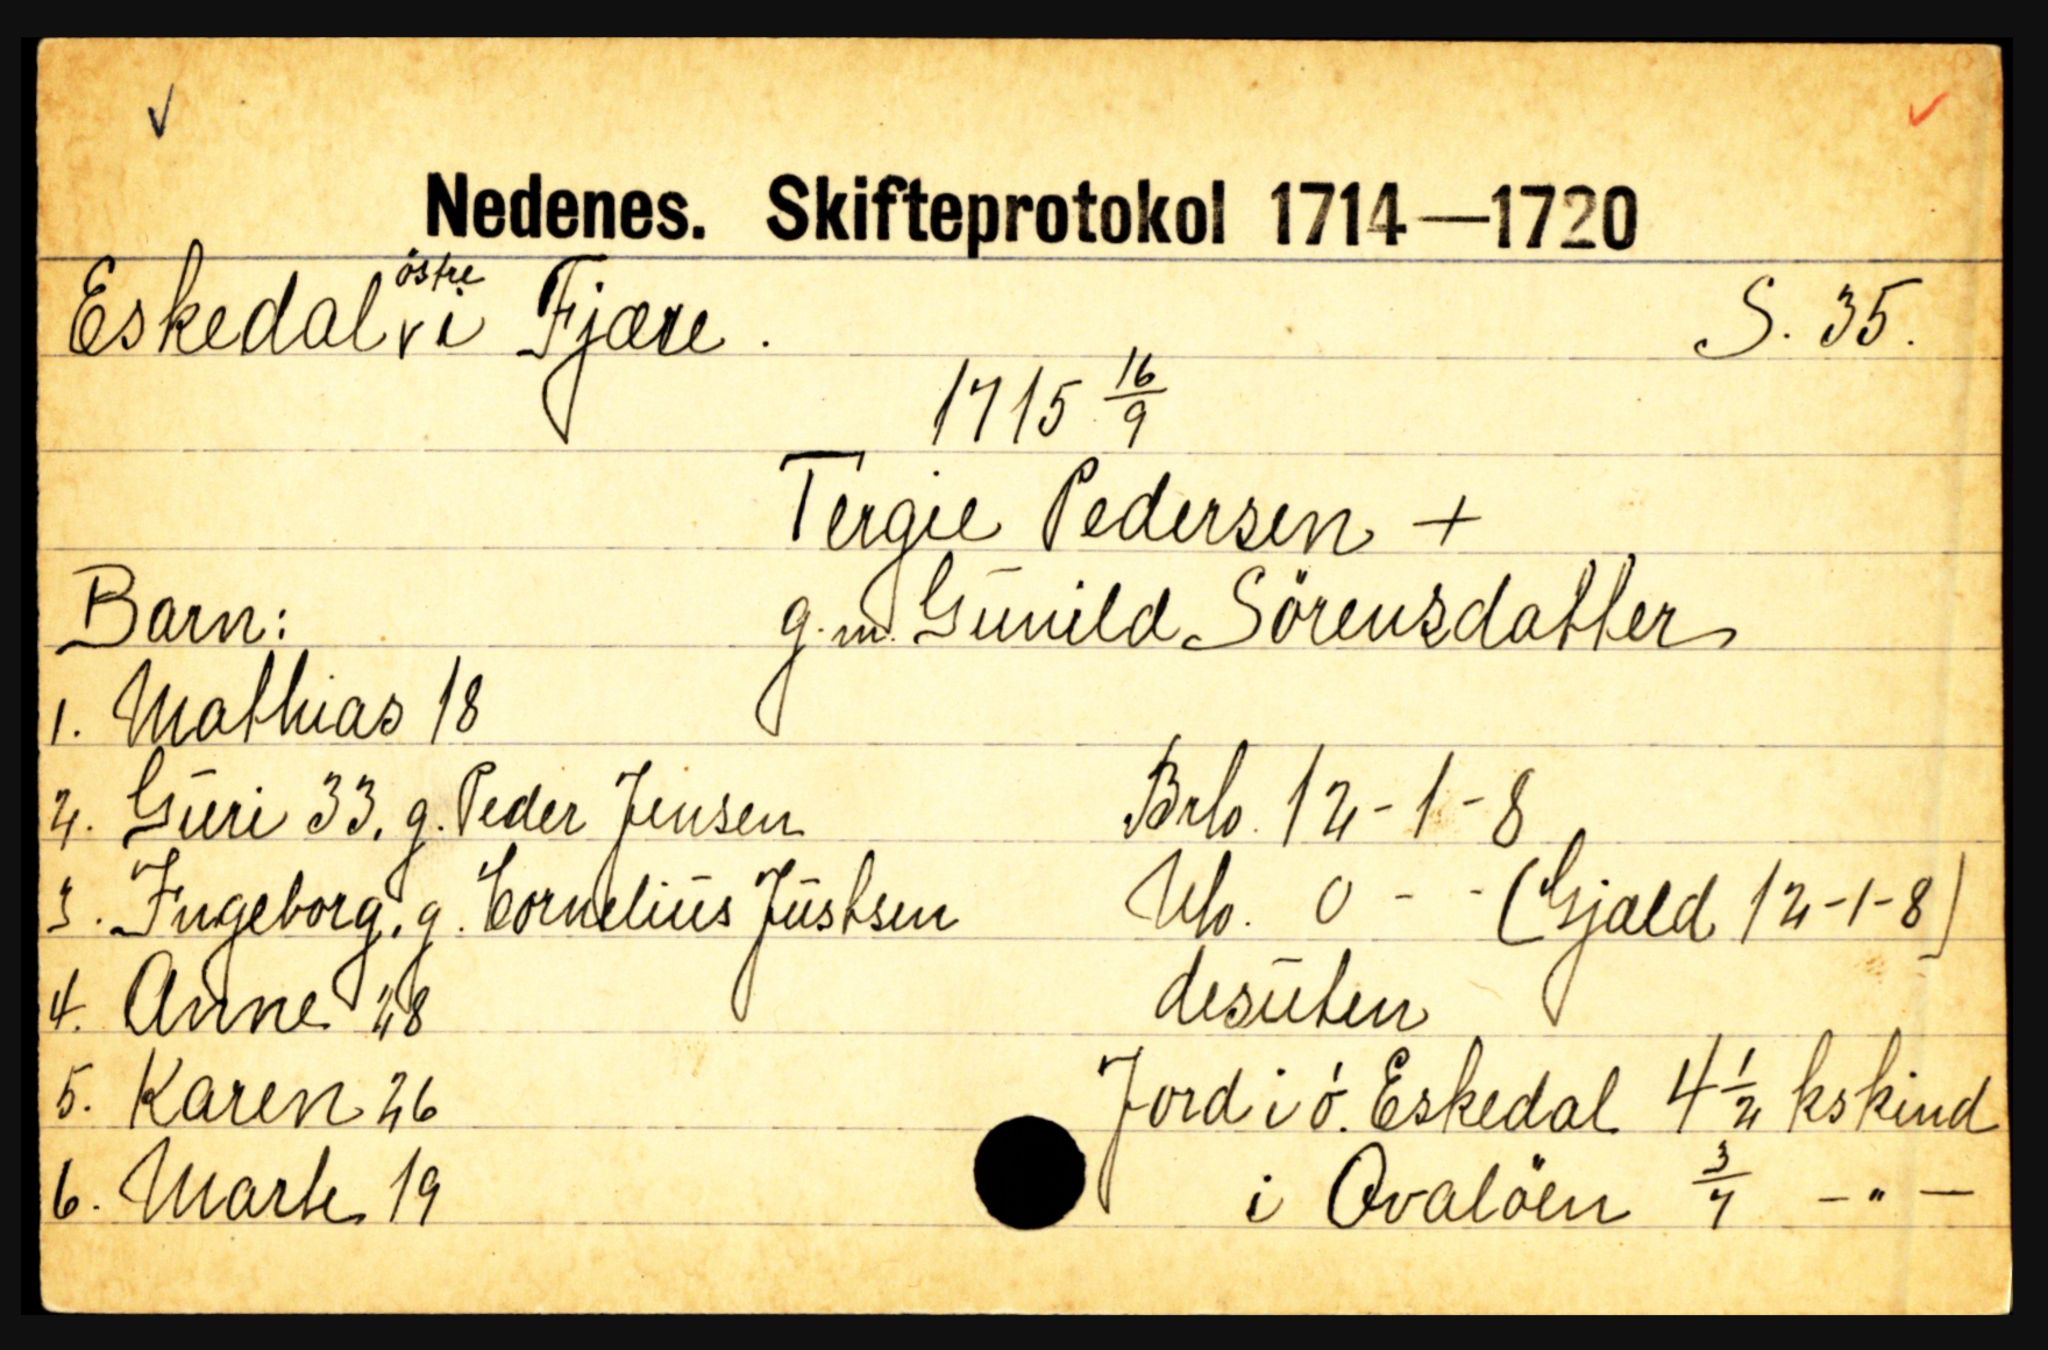 Nedenes. Skifteprotokol 1714—1720
Eskedal östre i Fjære. S. 35.
1715 16/9
Tergie Pedersen +
Barn: g. m. Gunild Sörensdatter
1. Mathias 18
2. Guri 33. g. Peder Jensen Brb. 12-1-8
3. Ingeborg. g. Cornelius Justsen Nb. 0 - - (Gjæld 12-1-8)
4. Anne 28 desuten
5. Karen 26 Jord i ö. Eskedal 4 1/2 kskind
6. Marte 19 i Ovalöen 3/7 - " -